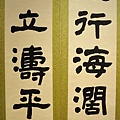 行海闊
立濤平